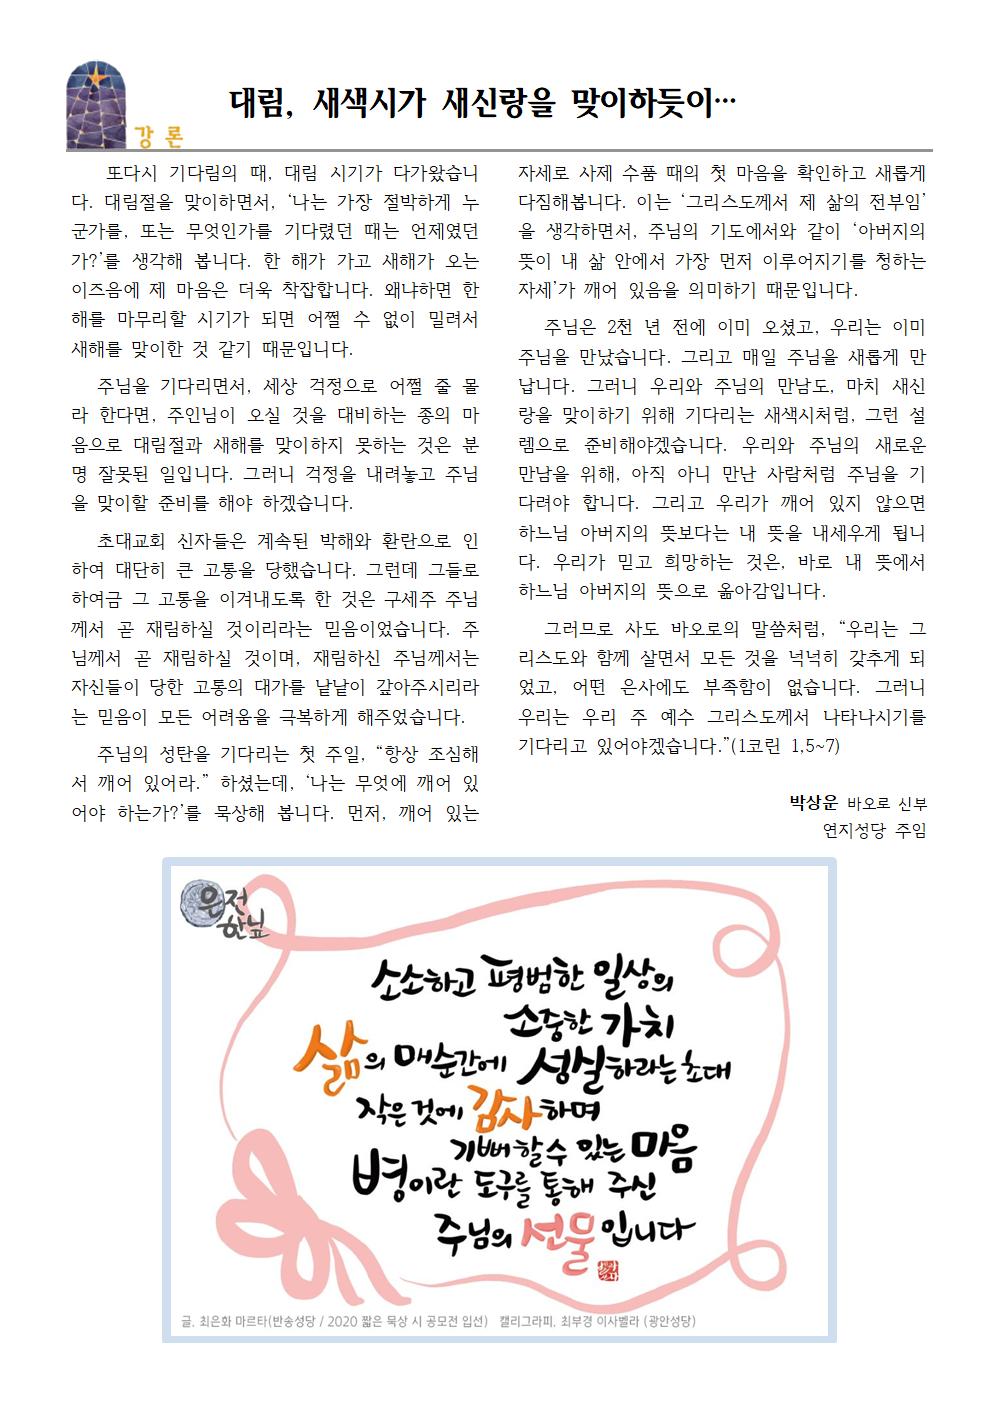 강 론
대림, 새색시가 새신랑을 맞이하듯이…
또다시 기다림의 때, 대림 시기가 다가왔습니
다. 대림절을 맞이하면서, ‘나는 가장 절박하게 누
군가를, 또는 무엇인가를 기다렸던 때는 언제였던
가?’를 생각해 봅니다. 한 해가 가고 새해가 오는
이즈음에 제 마음은 더욱 착잡합니다. 왜냐하면 한
해를 마무리할 시기가 되면 어쩔 수 없이 밀려서
새해를 맞이한 것 같기 때문입니다.
주님을 기다리면서, 세상 걱정으로 어쩔 줄 몰
라 한다면, 주인님이 오실 것을 대비하는 종의 마
음으로 대림절과 새해를 맞이하지 못하는 것은 분
명 잘못된 일입니다. 그러니 걱정을 내려놓고 주님
을 맞이할 준비를 해야 하겠습니다.
초대교회 신자들은 계속된 박해와 환란으로 인
하여 대단히 큰 고통을 당했습니다. 그런데 그들로
하여금 그 고통을 이겨내도록 한 것은 구세주 주님
께서 곧 재림하실 것이리라는 믿음이었습니다. 주
님께서 곧 재림하실 것이며, 재림하신 주님께서는
자신들이 당한 고통의 대가를 낱낱이 갚아주시리라
는 믿음이 모든 어려움을 극복하게 해주었습니다.
주님의 성탄을 기다리는 첫 주일, “항상 조심해
서 깨어 있어라.” 하셨는데, ‘나는 무엇에 깨어 있
어야 하는가?’를 묵상해 봅니다. 먼저, 깨어 있는
자세로 사제 수품 때의 첫 마음을 확인하고 새롭게
다짐해봅니다. 이는 ‘그리스도께서 제 삶의 전부임’
을 생각하면서, 주님의 기도에서와 같이 ‘아버지의
뜻이 내 삶 안에서 가장 먼저 이루어지기를 청하는
자세’가 깨어 있음을 의미하기 때문입니다.
주님은 2천 년 전에 이미 오셨고, 우리는 이미
주님을 만났습니다. 그리고 매일 주님을 새롭게 만
납니다. 그러니 우리와 주님의 만남도, 마치 새신
랑을 맞이하기 위해 기다리는 새색시처럼, 그런 설
렘으로 준비해야겠습니다. 우리와 주님의 새로운
만남을 위해, 아직 아니 만난 사람처럼 주님을 기
다려야 합니다. 그리고 우리가 깨어 있지 않으면
하느님 아버지의 뜻보다는 내 뜻을 내세우게 됩니
다. 우리가 믿고 희망하는 것은, 바로 내 뜻에서
하느님 아버지의 뜻으로 옮아감입니다.
그러므로 사도 바오로의 말씀처럼, “우리는 그
리스도와 함께 살면서 모든 것을 넉넉히 갖추게 되
었고, 어떤 은사에도 부족함이 없습니다. 그러니
우리는 우리 주 예수 그리스도께서 나타나시기를
기다리고 있어야겠습니다.”(1코린 1,5~7)
박상운 바오로 신부
연지성당 주임
은전
한닢
소소하고 평범한 일상의
소중한 가치
삶의 매순간에 성실하라는 초대
작은 것에 감사하며
기뻐할 수 있는 마음
병이란 도구를 통해 주신
주님의 선물입니다
글. 최은화 마르타(반송성당 / 2020 짧은 묵상 시 공모전 입선) 캘리그라피. 최부경 이사벨라 (광안성당)